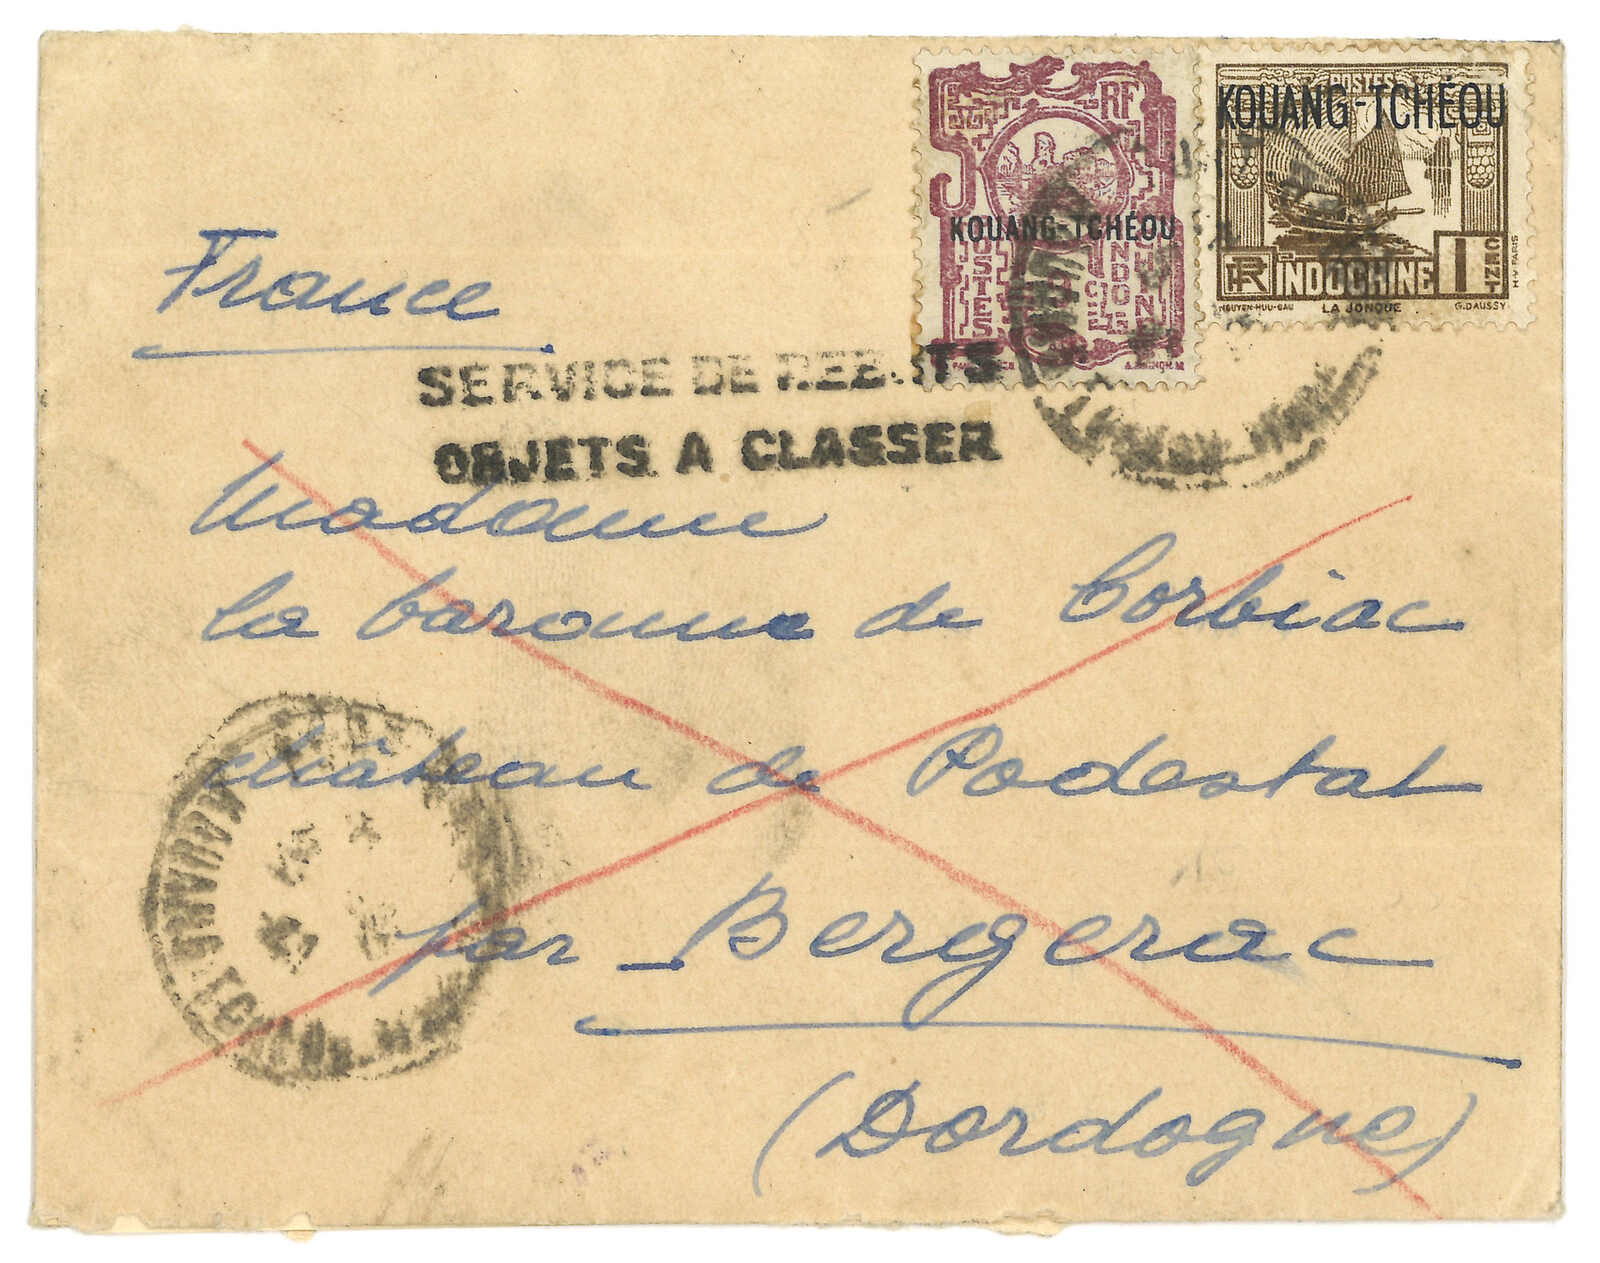 RF
KOUANG-TCHÉOU
POSTES
INDOCHINE
POSTES
KOUANG-TCHÉOU
RF INDOCHINE 1 CENT
NGUYEN-HUU-DAU LA JONQUE G.DAUSSY
H-V PARIS
France
SERVICE DE REBUTS
OBJETS A CLASSER
Madame
la baronne de Corbiac
château de Podestat
par Bergerac
(Dordogne)